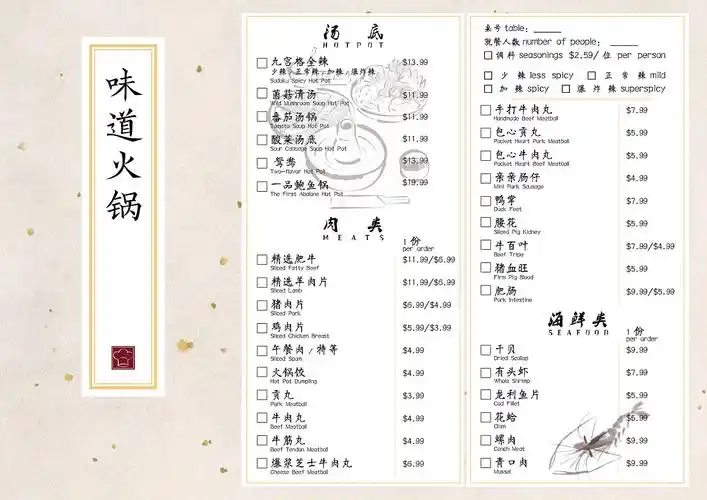 味道火锅
汤底
HOTPOT
九宫格全辣 $13.99
少辣/正常辣/加辣/爆炸辣
Suduku Spicy Hot Pot
菌菇清汤 $11.99
Wild Mushroom Soup Hot Pot
番茄汤锅 $11.99
Tomato Soup Hot Pot
酸菜汤底 $11.99
Sour Cabbage Soup Hot Pot
鸳鸯 $13.99
Two-flavor Hot Pot
一品鲍鱼锅 $19.99
The First Abalone Hot Pot
肉类
MEATS
1份
per order
精选肥牛 $11.99/$6.99
Sliced Fatty Beef
精选羊肉片 $11.99/$6.99
Sliced Lamb
猪肉片 $6.99/$4.99
Sliced Pork
鸡肉片 $5.99/$3.99
Sliced Chicken Breast
午餐肉/特等 $4.99
Sliced Spam
火锅饺 $4.99
Hot Pot Dumpling
贡丸 $3.99
Pork Meatball
牛肉丸 $4.99
Beef Meatball
牛筋丸 $4.99
Beef Tendon Meatball
爆浆芝士牛肉丸 $6.99
Cheese Beef Meatball
桌号 table:
就餐人数 number of people:
调料 seasonings $2.59/位 per person
少辣 less spicy 正常辣 mild
加辣 spicy 爆炸辣 superspicy
手打牛肉丸 $7.99
Handmade Beef Meatball
包心贡丸 $5.99
Packet Heart Pork Meatball
包心牛肉丸 $5.99
Packet Heart Beef Meatball
亲亲肠仔 $4.99
Mini Pork Sausage
鸭掌 $7.99
Duck Feet
腰花 $5.99
Sliced Pig Kidney
牛百叶 $7.99/$4.99
Beef Tripe
猪血旺 $5.99
Firm Pig Blood
肥肠 $9.99/$5.99
Pork Intestine
海鲜类
SEAFOOD
1份
per order
干贝 $9.99
Dried Scallop
有头虾 $7.99
Whole Shrimp
龙利鱼片 $5.99
Cod Fillet
花蛤 $6.99
Clam
螺肉 $9.99
Conch Meat
青口肉 $9.99
Mussel